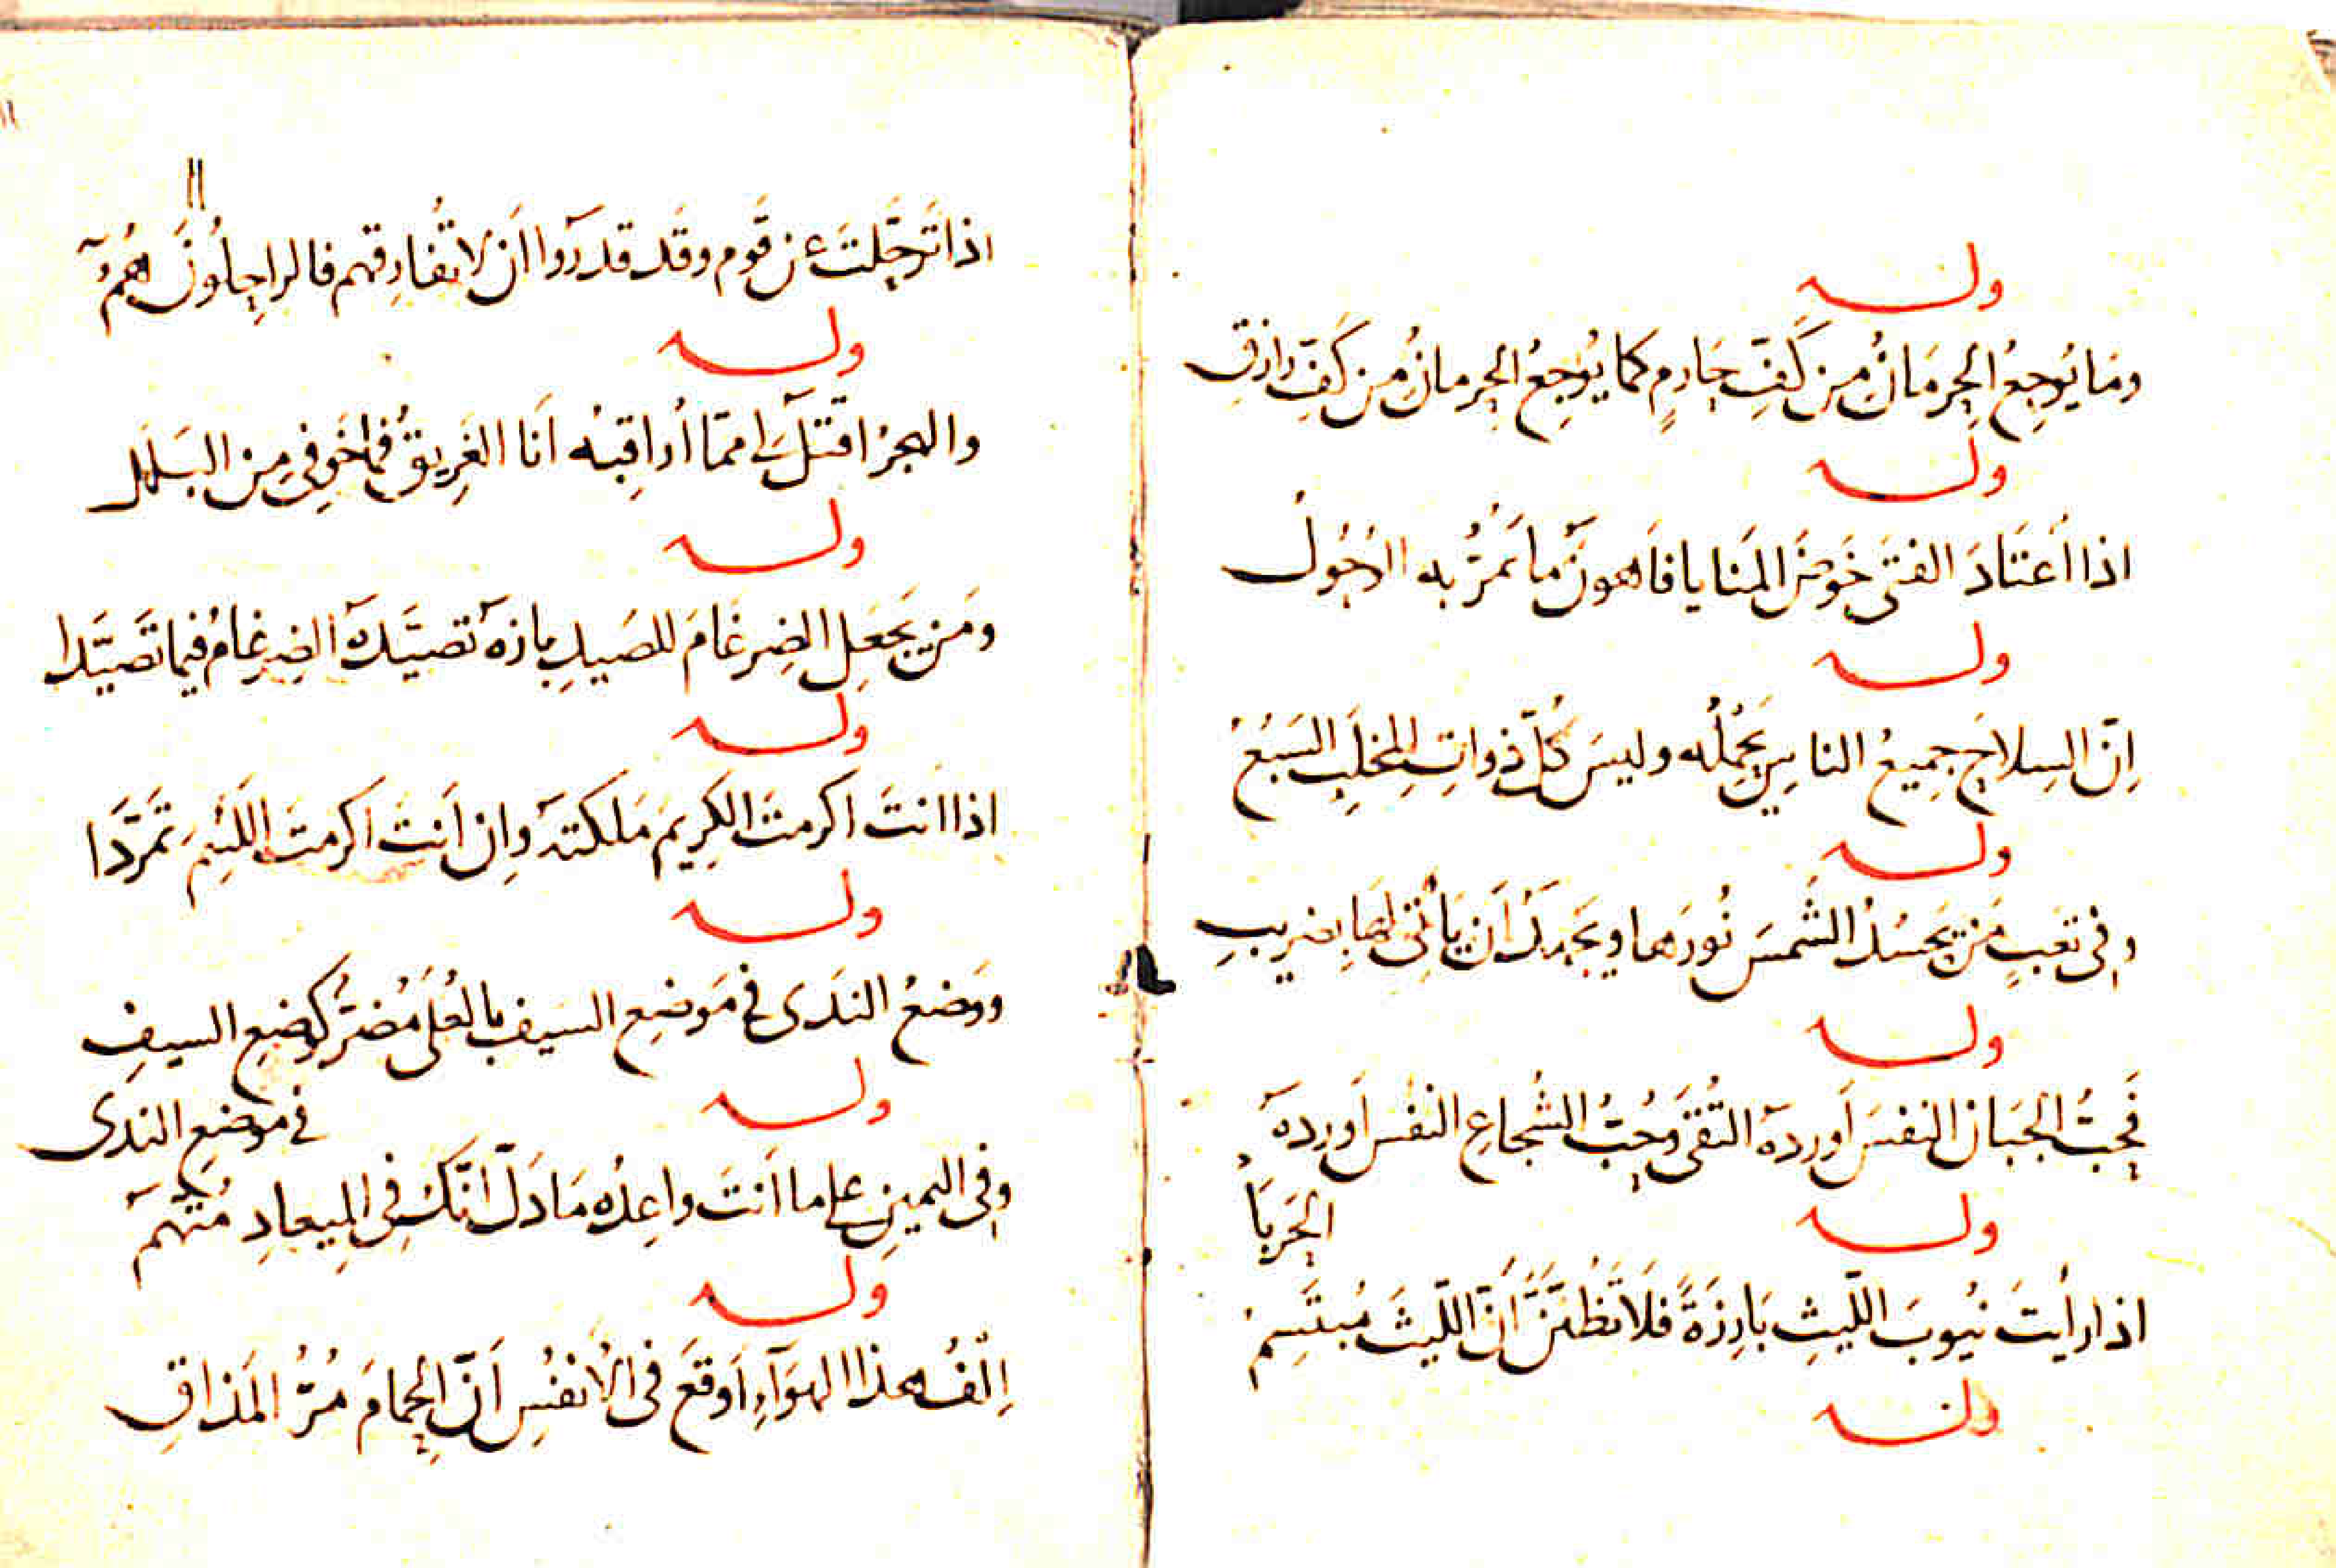 وله
وَمَا يُوجِعُ الحِرمَانُ مِن كَفِّ حَارِمٍ كما يُوجِعُ الحِرمانُ مِن كَفِّ رازقِ
وله
اذا اعتَادَ الفتَى خَوضَ المَنايا فأهونُ ما تَمُرُّ به الوُحُولُ
وله
اِنّ السِلاحَ جمِيعُ الناسِ يَحمِلُه وليسَ كُلّ ذواتِ المِخلَبِ السَبُعُ
وله
وفى تعَبٍ مَن يَحسُدُ الشَمسَ نُورَها ويَجهدُ اَن يَأتى لهَا بِضَرِيبِ
وله
فَحُبُّ الجَبَان النفسَ اَوردهَ التُقَى وَحُبُّ الشُجاعِ النفسَ اَوردهَ
الحَربَا
وله
اذا رايتَ نيُوبَ اللّيثِ بَارِزَةً فلَا تَظُنَّنَّ اَنّ اللّيثَ مُبتَسِمُ
وله
١١
اذا تَرحَّلتَ عن قَومٍ وقَد قدرَوا ان لا تُفارِقهم فالراحِلُونَ هُمُ
وله
والهجرُ اقتَلُ لى ممّا اُراقِبُه اَنا الغَرِيقُ فما خَوفى مِن البَلَلِ
وله
ومَن يَجعَلِ الضِرغَامَ للصَيدِ بازهَ تصيَّدهَ الضِرغامُ فيما تَصَيَّدا
وله
اذا انتَ اكرمتَ الكَرِيمَ مَلكتهَ وإن اَنتَ اَكرمتَ اللَئِيمَ تَمَرَّدَا
وله
وَوَضعُ النَدَى فى مَوضِعِ السَيفِ بالعُلَى مُضرٌّ كَوضعِ السيفِ
فى موضعِ الندَى
وفى اليمينِ على ما اَنتَ واعِدُه مَا دَلَّ اَنّكَ فى المِيعادِ مُتّهَمُ
وله
اِلفُ هذا الهوَآءِ اَوقعَ فى الاَنفُسِ اَنّ الحِمامَ مُرُّ المَذاقِ